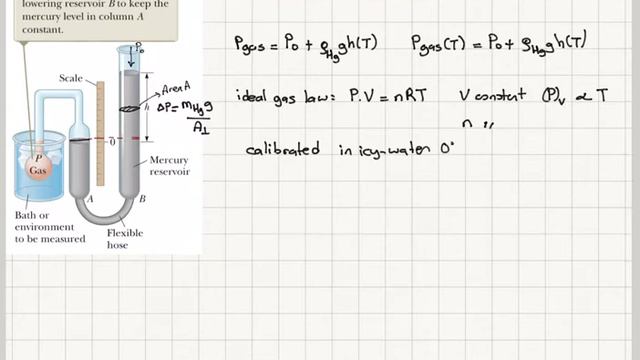 lowering reservoir B to keep the
mercury level in column A
constant.
P₀
Scale
Area A
h
ΔP = m_Hg g / A⊥
0
P
Gas
Mercury
reservoir
A
B
Bath or
environment
to be measured
Flexible
hose
Pgas = P₀ + ρ_Hg gh(T) Pgas(T) = P₀ + ρ_Hg gh(T)
ideal gas law: P.V = nRT V constant (P)ᵥ ∝ T
n ,,
calibrated in icy-water 0°